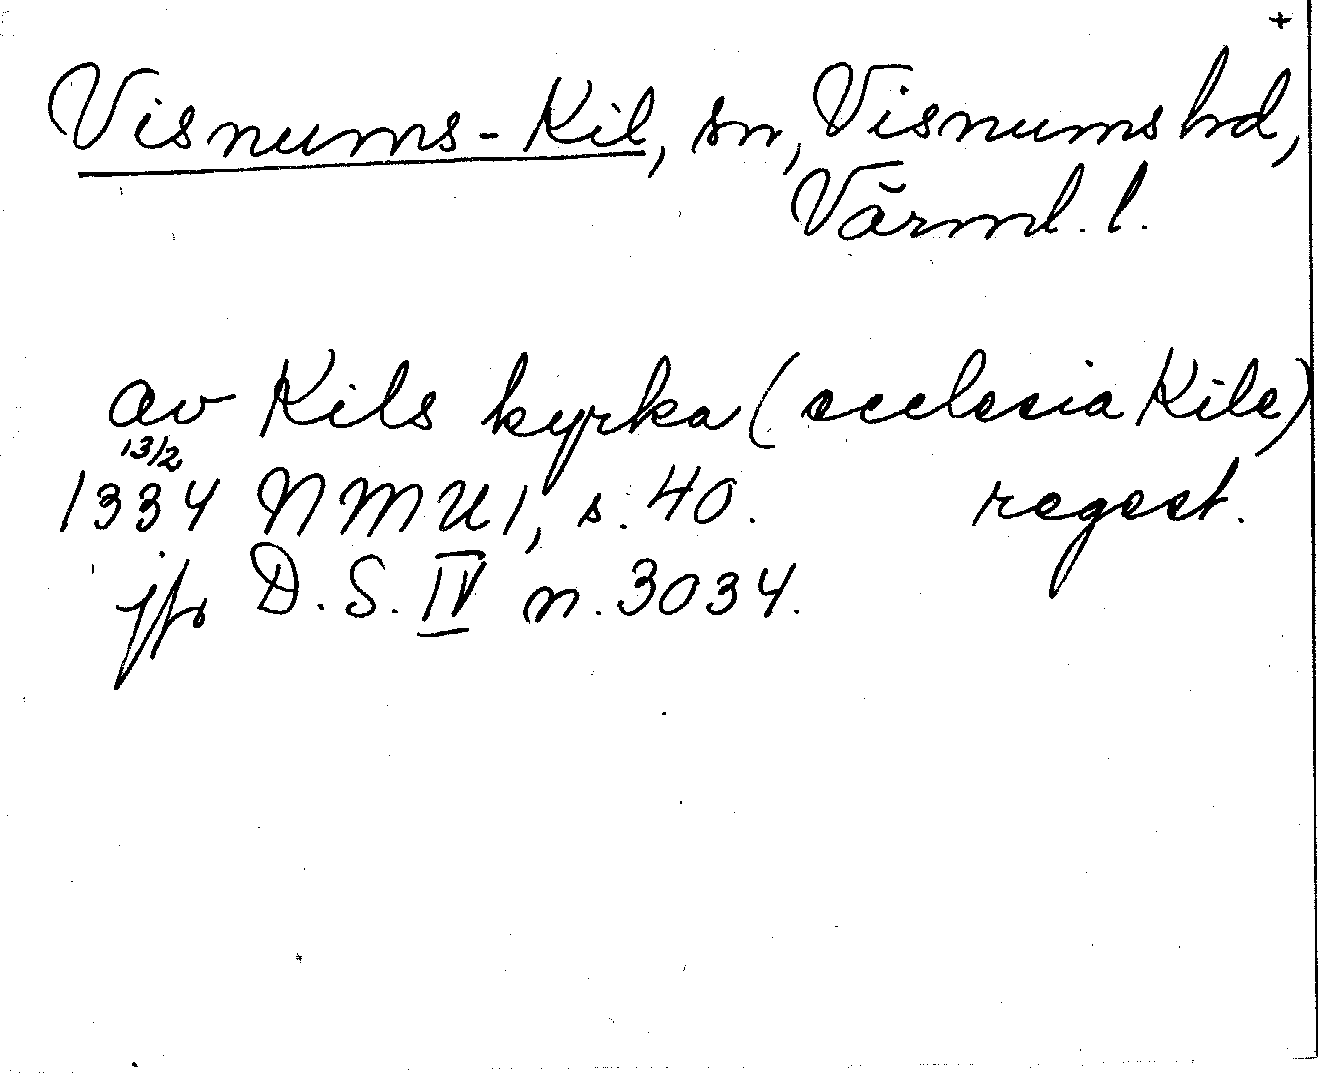 +
Visnums-Kil, sn, Visnums hd,
Värml. l.
av Kils kyrka (ecclesia Kile)
13/2
1334 NMU 1, s. 40. regest.
jfr D. S. IV n. 3034.